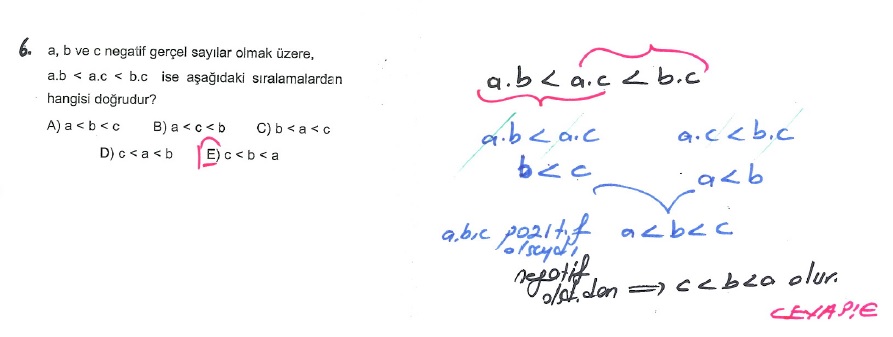 6. a, b ve c negatif gerçel sayılar olmak üzere,
a.b < a.c < b.c ise aşağıdaki sıralamalardan
hangisi doğrudur?
A) a < b < c B) a < c < b C) b < a < c
D) c < a < b E) c < b < a
a.b < a.c < b.c
a.b < a.c a.c < b.c
b < c a < b
a,b,c pozitif a < b < c
olsaydı
negatif
old.dan ⇒ c < b < a olur.
CEVAP:E